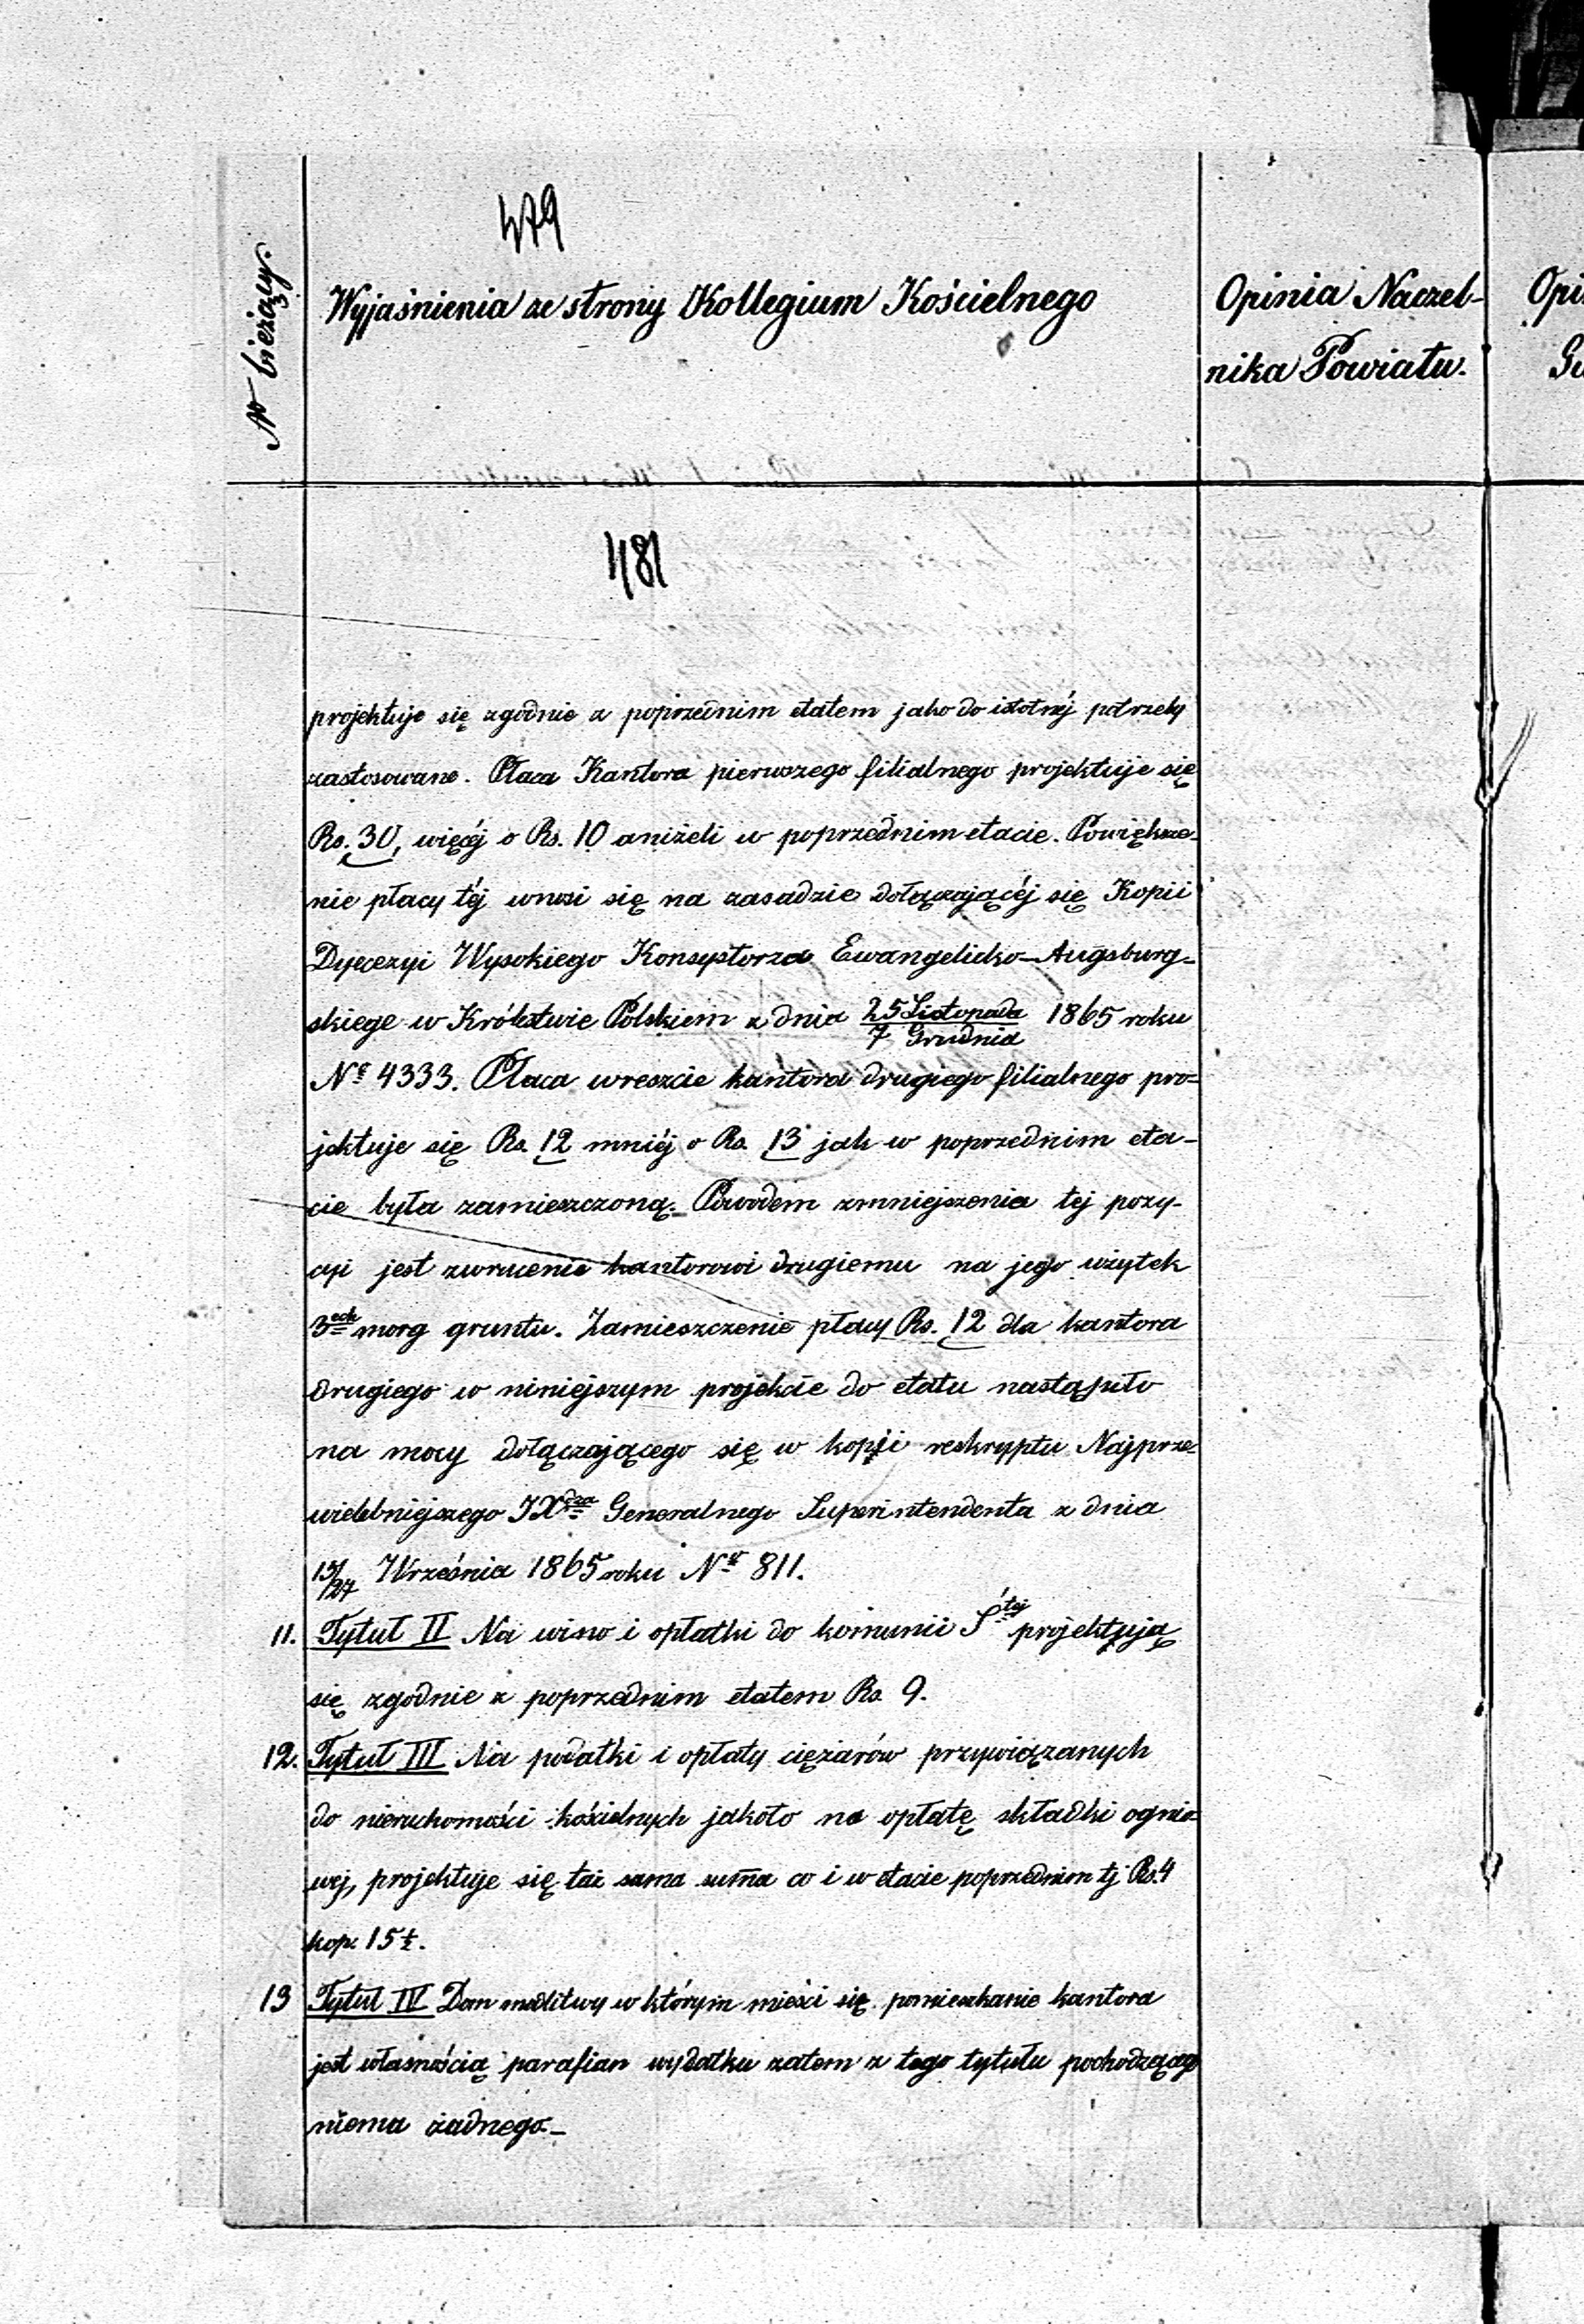 479
№ bieżący.
Wyjaśnienia ze strony Kollegium Kościelnego
Opinia Naczel-
nika Powiatu.
Opi
Gu
481
projektuje się zgodnie z poprzednim etatem jako do istotnéj potrzeby
zastosowane. Płaca Kantora pierwszego filialnego projektuje się
Rs. 30, więcéj o Rs. 10 aniżeli w poprzednim etacie. Powiększe-
nie płacy téj wnosi się na zasadzie dołączającéj się Kopii
Dyecezyi Wysokiego Konsystorza Ewangelicko-Augsburg-
skiego w Królestwie Polskiem z dnia 25 Listopada / 7 Grudnia 1865 roku
Nº 4333. Płaca wreszcie kantora drugiego filialnego pro-
jektuje się Rs. 12 mniéj o Rs. 13 jak w poprzednim eta-
cie była zamieszczoną. Powodem zmniejszenia tej pozy-
cyi jest zwrucenie kantorowi drugiemu na jego użytek
3ech morg gruntu. Zamieszczenie płacy Rs. 12 dla kantora
drugiego w niniejszym projekcie do etatu nastąpiło
na mocy dołączającego się w kopji reskryptu Najprze-
wielebniejszego JXdza Generalnego Superintendenta z dnia
15/27 Września 1865 roku Nr 811.
11. Tytuł II Na wino i opłatki do komunii Śtej projektują
się zgodnie z poprzednim etatem Rs. 9.
12. Tytuł III Na podatki i opłaty ciężarów przywiązanych
do nieruchomości kościelnych jakoto na opłatę składki ognio-
wej, projektuje się taż sama suma co i w etacie poprzednim tj Rs. 4
kop. 15½.
13 Tytuł IV Dom modlitwy w którym mieści się pomieszkanie kantora
jest własnością parafian wydatku zatem z tego tytułu pochodzącego
niema żadnego.